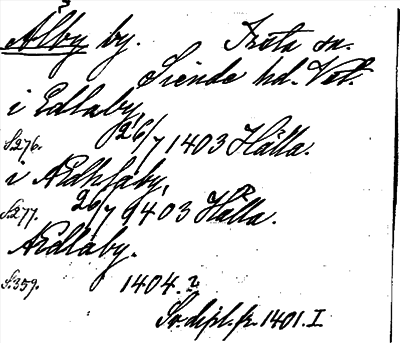 Alby by. Irsta sn.
Siende hd. Vstm.
i Edlaby,
S.276. 26/7 1403 Hälla.
i Ædhlaby,
S.277. 26/7 1403 Hälla.
Ædlaby.
S.359. 1404.2
Sv. dipl. fr. 1401. I